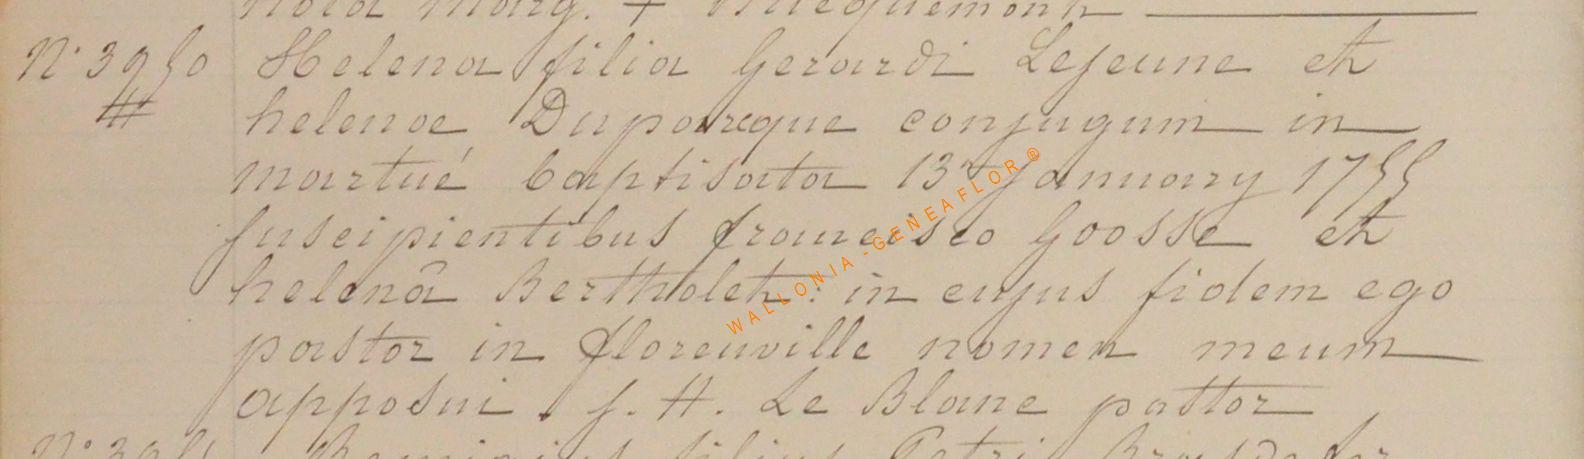 nola marg. +
N° 3950 Helena filia Gerardi Lejeune et
helenae Duparque conjugum in
martué baptisata 13ª January 1755
suscipientibus francisco Goosse et
helenâ Bertholet : in cujus fidem ego
pastor in florenville nomen meum
apposui . J. H. Le Blanc pastor
filius Petri
WALLONIA - GENEAFLOR ®